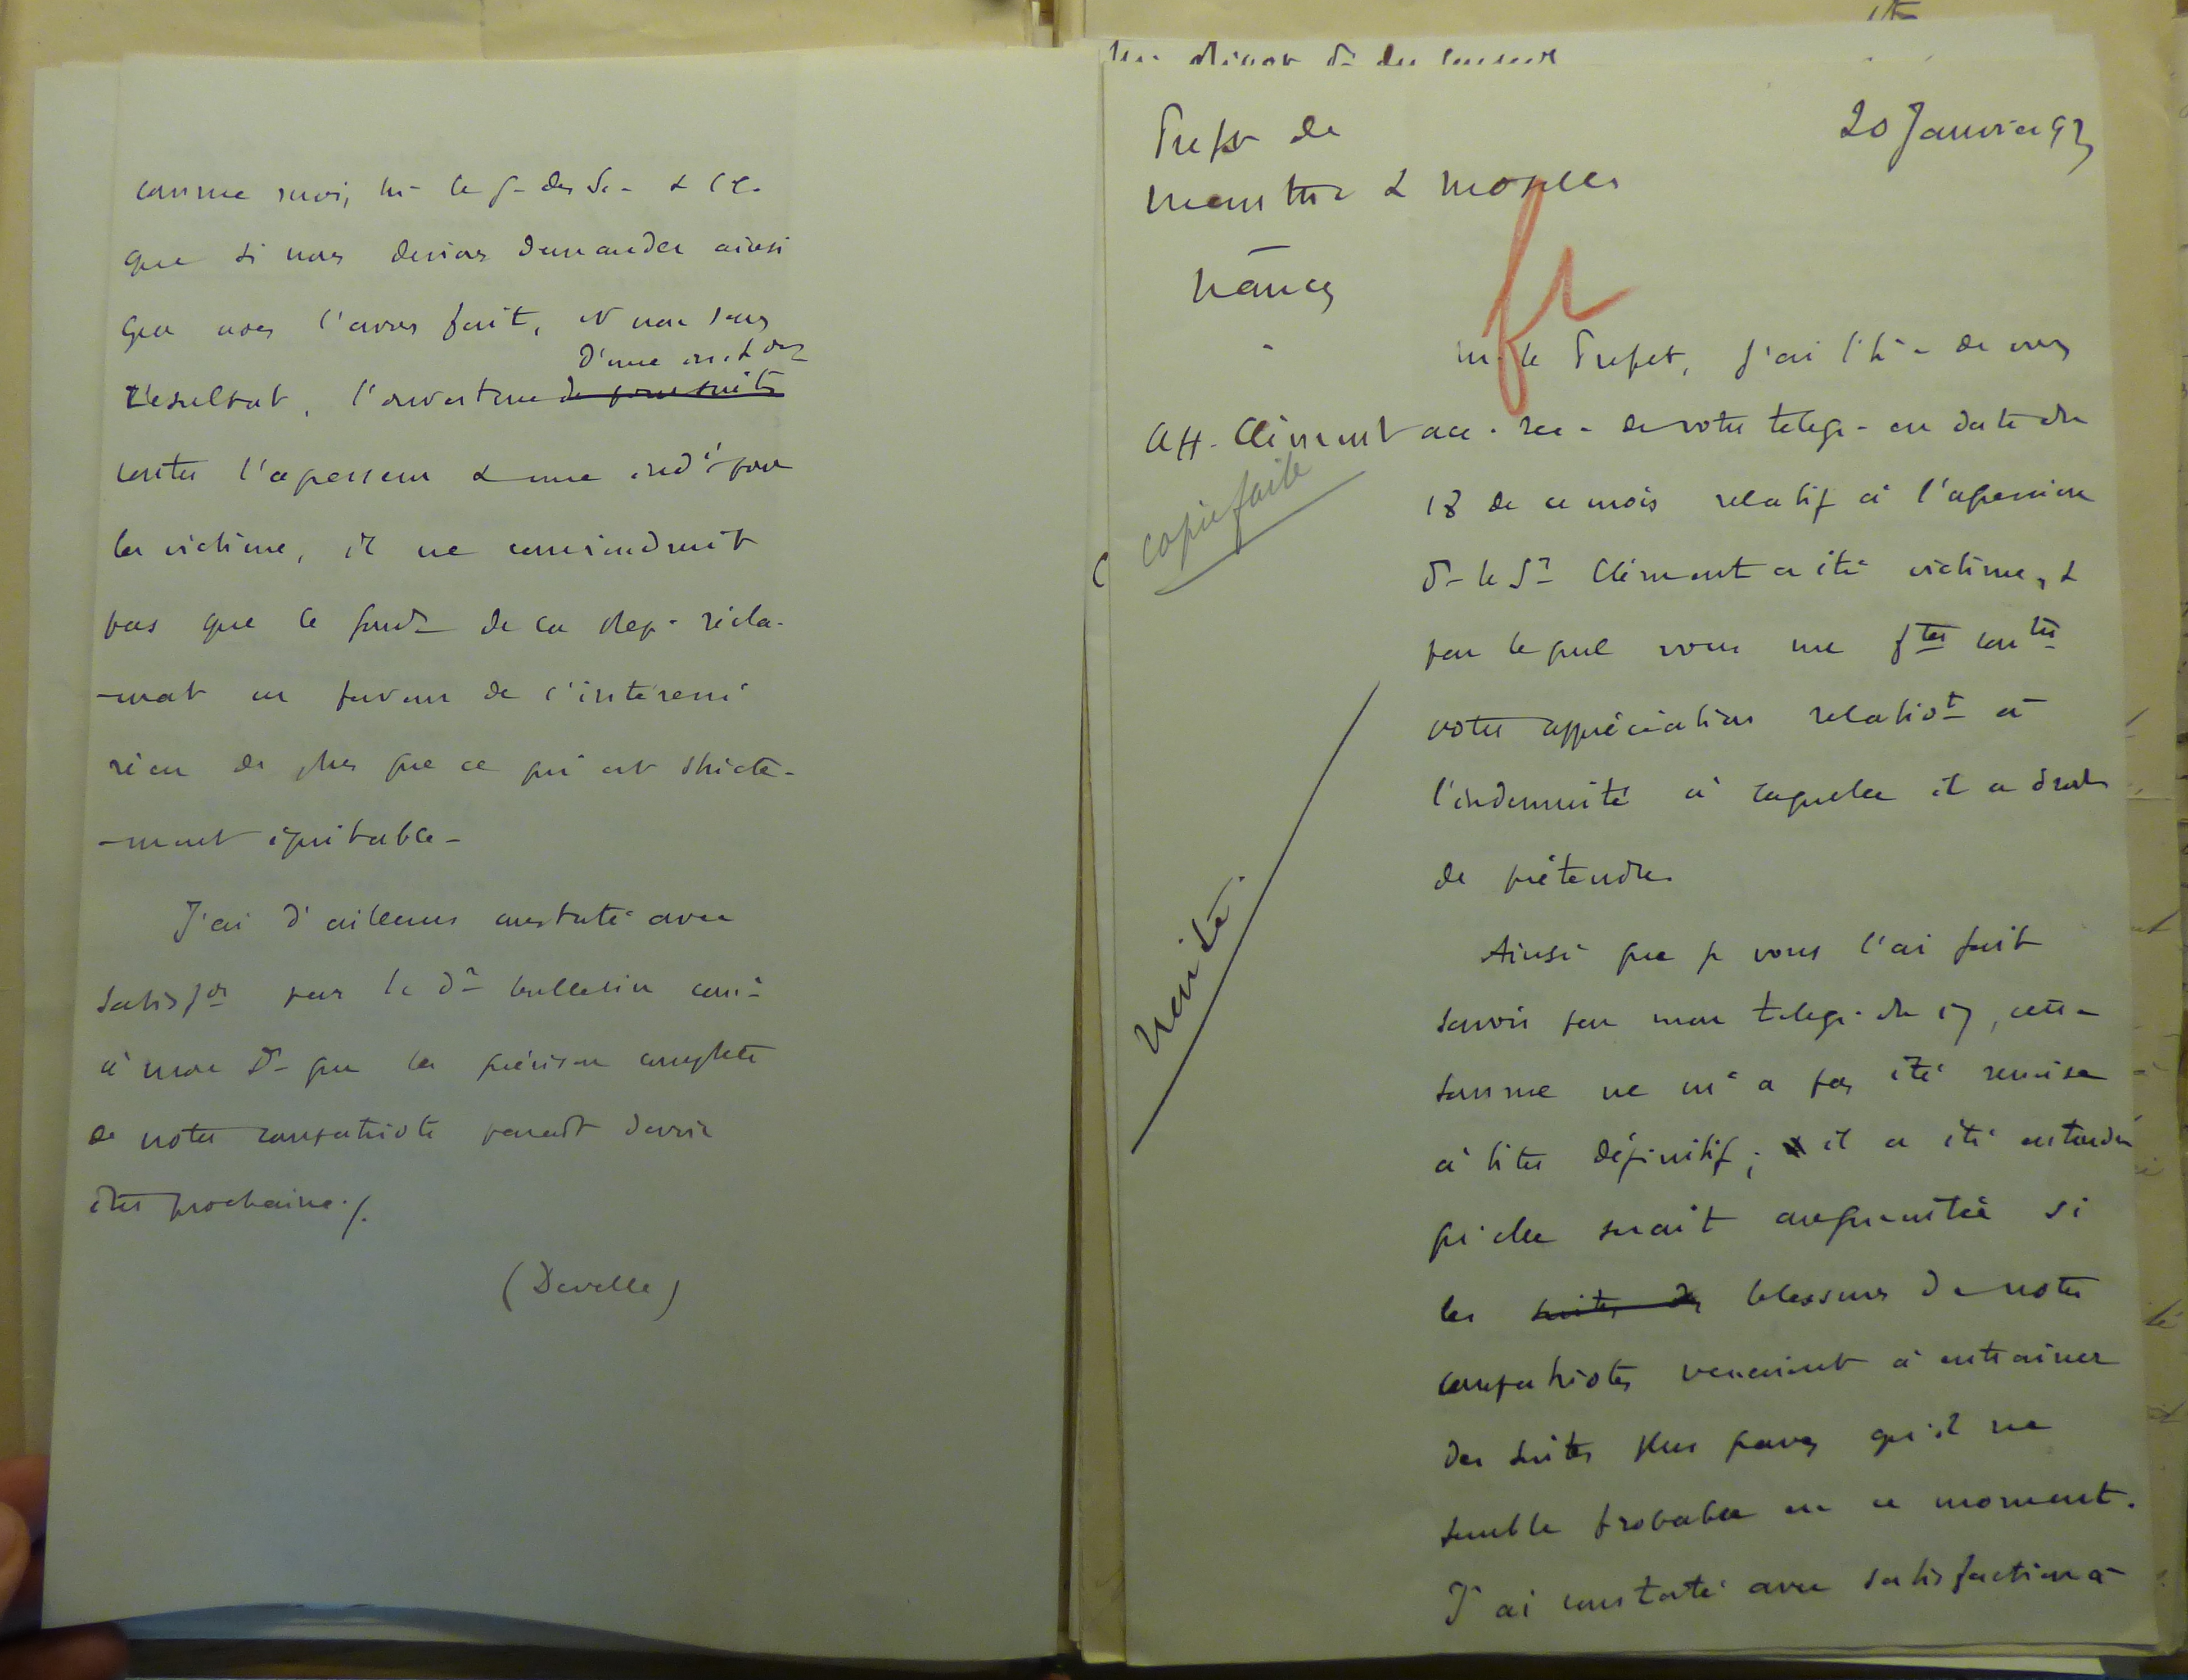 comme moi, M- le G- des Sc- &
que si nous devions demander ainsi
que nous l'avons fait, et non sans
d'une
résultat, l'ouverture de poursuites
contre l'agresseur & une ind^é pour
la victime, il ne conviendrait
pas que le gouv^t de la Rep- récla-
-mat en faveur de l'intéressé
rien de plus que ce qui est stricte-
-ment équitable-
J'ai d'ailleurs constaté avec
satisf^on par le d^r bulletin
à mon D- que la guérison complète
de notre compatriote paraît devoir
être prochaine./.
(Develle)
Prefet de
Meurthe & Moselle
Nancy
20 Janvier 93
M. le Prefet, j'ai l'h- de vous
Aff. Clément
acc. rec- de votre telegr- en date du
copie faite
18 de ce mois relatif à l'agression
d- le S^r Clément a été victime, &
par lequel vous me f^tes con^tre
votre appréciation relativ^t à
l'indemnité à laquelle il a droit
de prétendre.
Ainsi que je vous l'ai fait
savoir par mon telegr. du 17, cette
somme ne m'a pas été remise
à titre définitif; il a été entendu
qu'elle serait augmentée si
les suites des blessures de notre
compatriote venaient à entraîner
des suites plus graves qu'il ne
semble probable en ce moment.
J'ai constaté avec satisfaction à